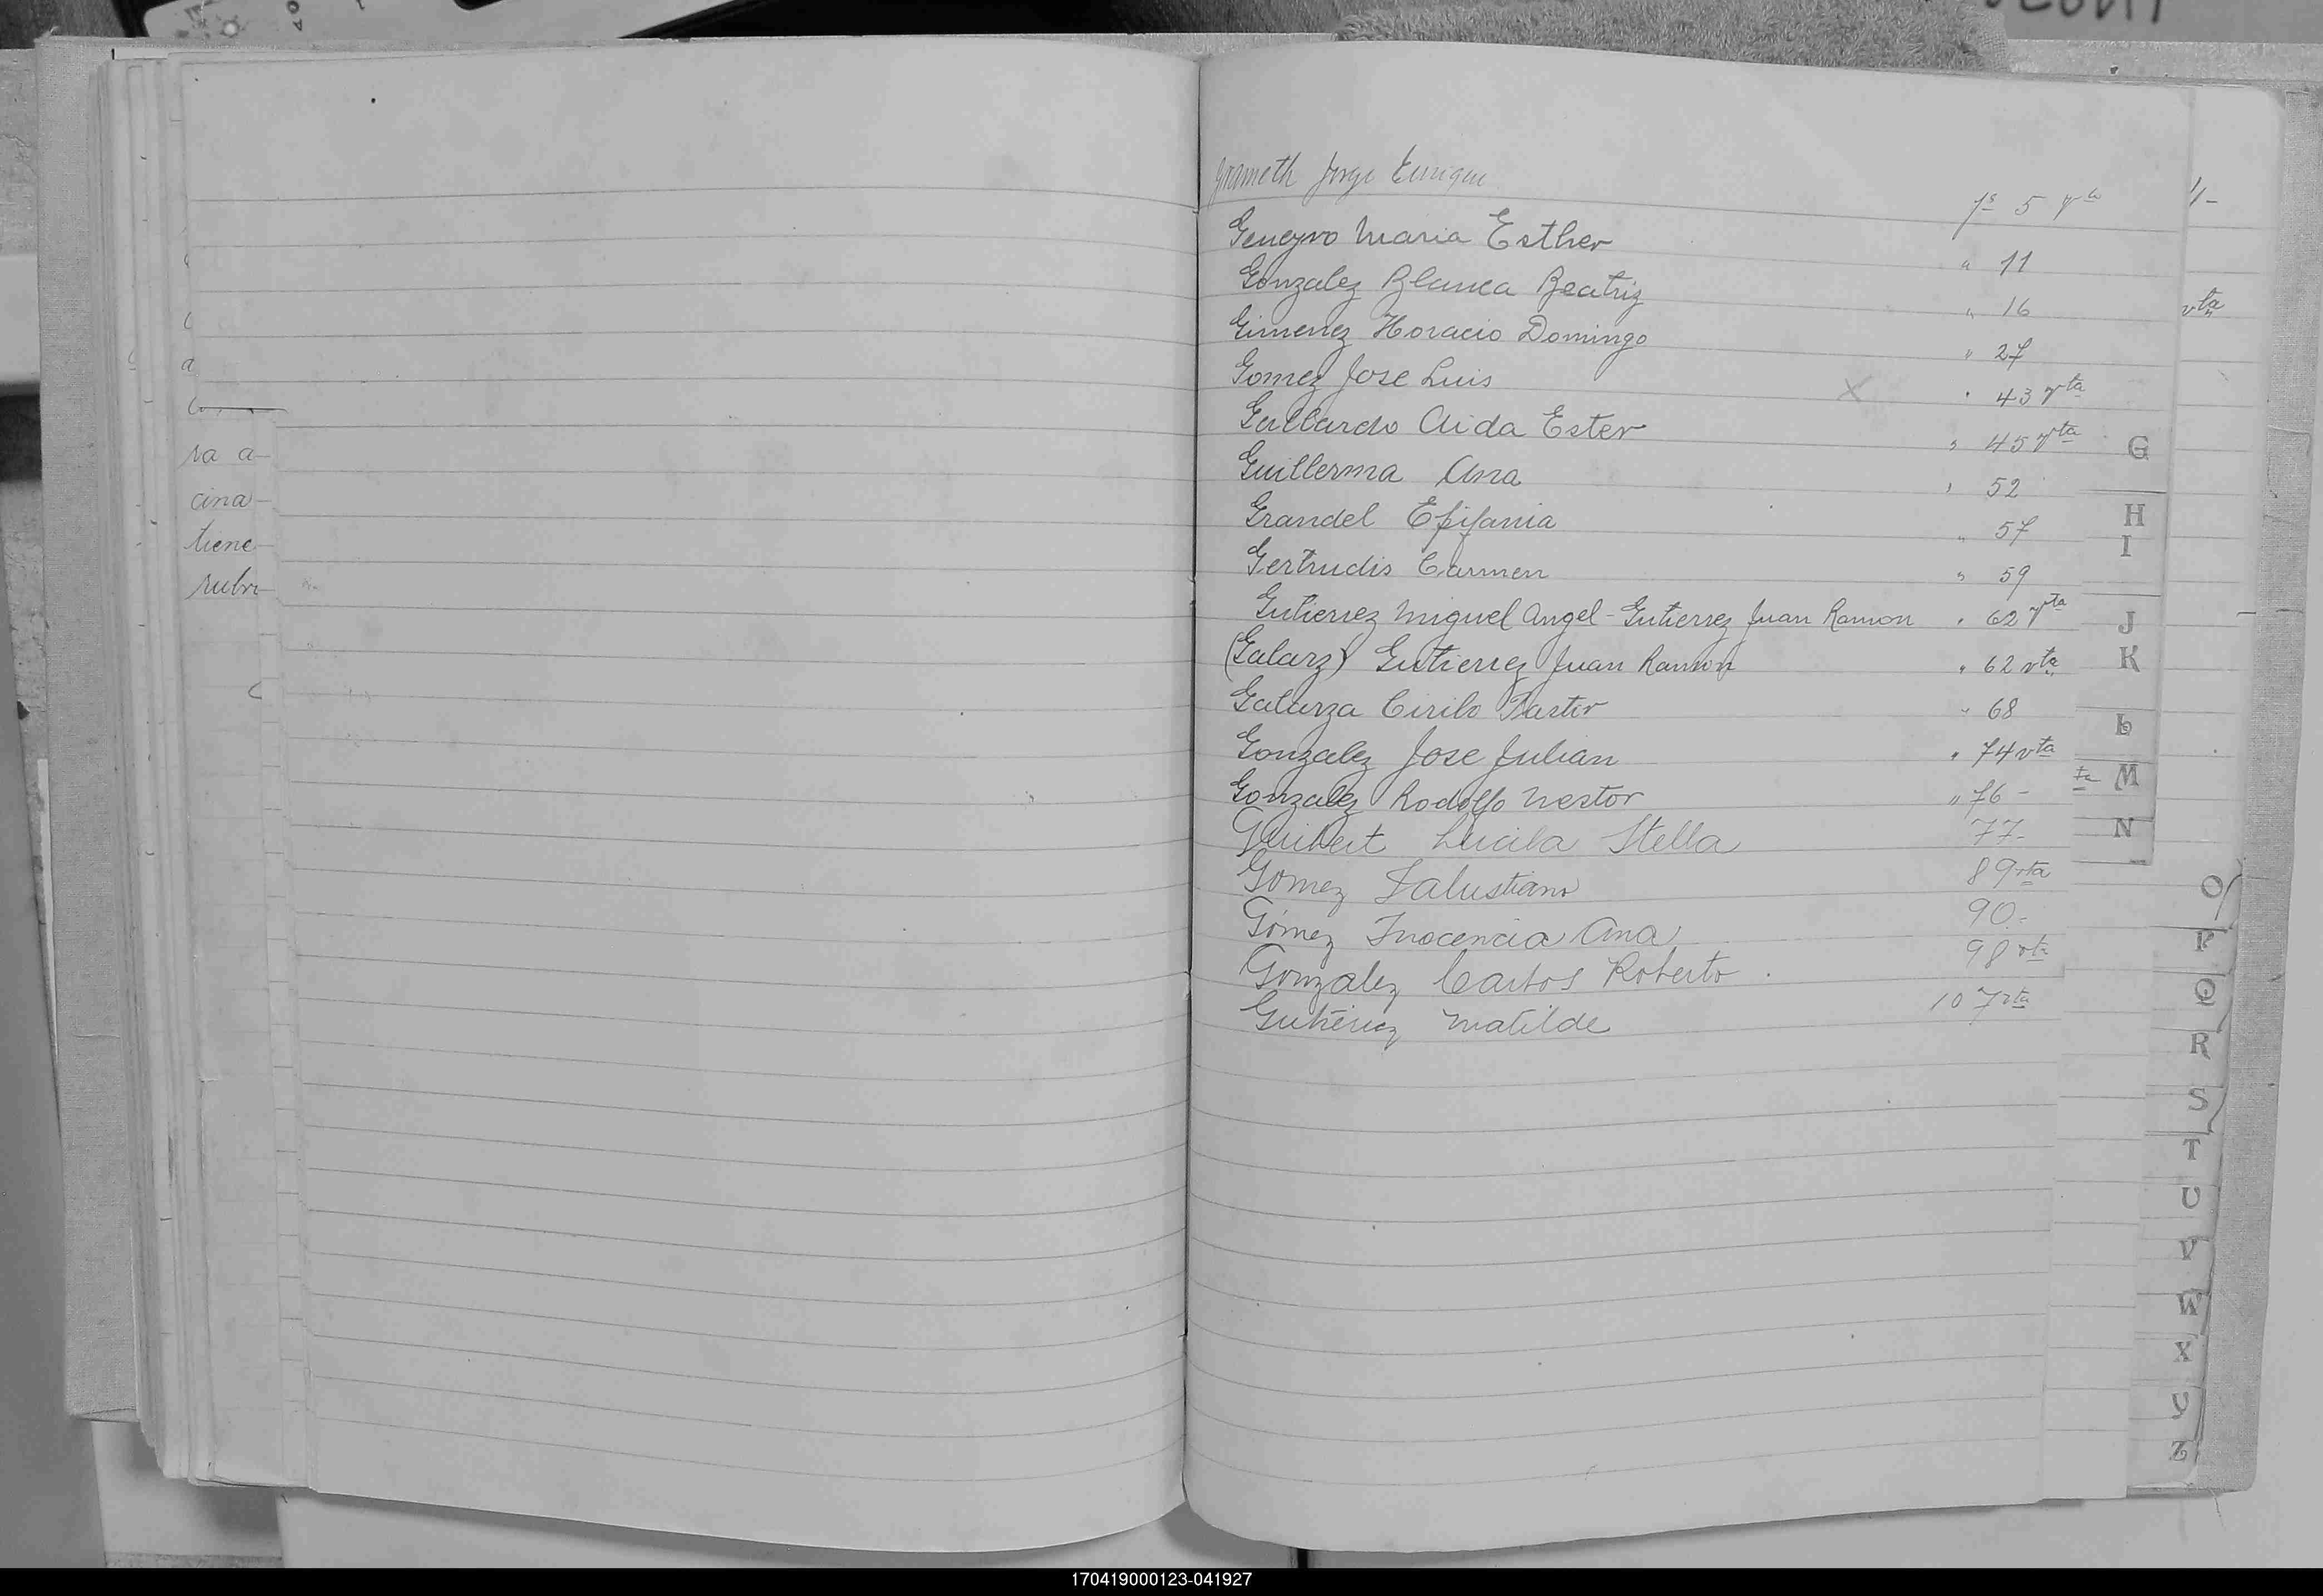 Grameth Jorge Enrique fs 5 vta
Geneyro Maria Esther " 11
Gonzalez Blanca Beatriz " 16
Gimenez Horacio Domingo " 27
Gomez Jose Luis X " 43 vta
Gallardo Aida Ester " 45 vta
Guillerma Ana " 52
Grandel Epifania " 57
Gertrudis Carmen " 59
Gutierrez Miguel Angel - Gutierrez Juan Ramon " 62 vta
(Galarz) Gutierrez Juan Ramon " 62 vta
Galarza Cirilo Pastor " 68
Gonzalez Jose Julian " 74 vta
Gonzalez Rodolfo Nestor " 76 -
Guibert Lucila Stella 77-
Gomez Salustiano 89 vta
Gómez Inocencia Ana 90-
Gonzalez Carlos Roberto 98 vta
Gutiérrez Matilde 107 vta
vta
ta
ra a
cina
tiene
rubri
G
H
I
J
K
L
M
N
O
P
Q
R
S
T
U
V
W
X
Y
Z
170419000123-041927